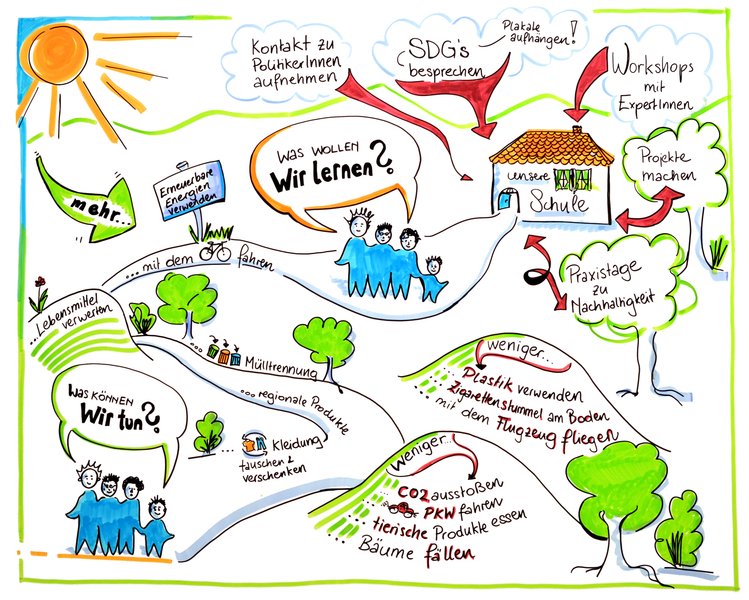 Kontakt zu
PolitikerInnen
aufnehmen
SDG's
besprechen
Plakate
aufhängen!
Workshops
mit
ExpertInnen
Projekte
machen
Praxistage
zu
Nachhaltigkeit
unsere
Schule
Was wollen
Wir lernen?
mehr...
Erneuerbare
Energien
verwenden
...mit dem fahren
...Lebensmittel
verwerten
... Mülltrennung
... regionale Produkte
... Kleidung
tauschen &
verschenken
Was können
Wir tun?
weniger...
... Plastik verwenden
... Zigarettenstummel am Boden
... mit dem Flugzeug fliegen
weniger...
... CO2 ausstoßen
... PKW fahren
... tierische Produkte essen
... Bäume fällen